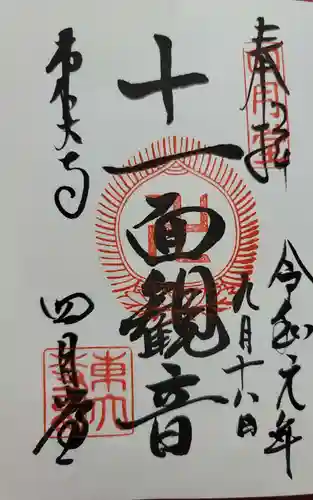 奉拝
令和元年
九月十八日
十一面観音
東大寺
四月堂
四月堂
東大寺